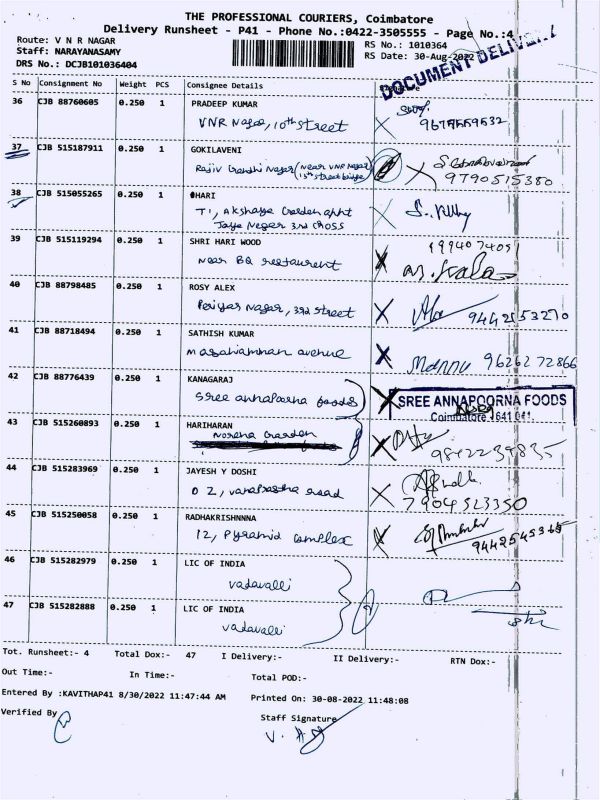 THE PROFESSIONAL COURIERS, Coimbatore
Delivery Runsheet - P41 - Phone No.:0422-3505555 - Page No.:4
Route: V N R NAGAR
RS No.: 1010364
Staff: NARAYANASAMY
RS Date: 30-Aug-2022
DRS No.: DCJB101036404
DOCUMENT DELIVERY
S No Consignment No Weight PCS Consignee Details
36 CJB 88760605 0.250 1 PRADEEP KUMAR
VNR Nagar, 10th street
37 CJB 515187911 0.250 1 GOKILAVENI
Rajiv Gandhi Nagar (Near VNR Nagar
15th street bridge)
9790515380
38 CJB 515055265 0.250 1 HARI
T1, Akshaya Garden appt
Jaya Nagar 3rd cross
39 CJB 515119294 0.250 1 SHRI HARI WOOD
Near BQ restaurent
40 CJB 88798485 0.250 1 ROSY ALEX
Periyar Nagar, 3rd street
9442153270
41 CJB 88718494 0.250 1 SATHISH KUMAR
masaniamman avenue
Mannu 9626272866
42 CJB 88776439 0.250 1 KANAGARAJ
Sree annapoorna foods
SREE ANNAPOORNA FOODS
Coimbatore 641 041
43 CJB 515260893 0.250 1 HARIHARAN
Garden
9842234835
44 CJB 515283969 0.250 1 JAYESH Y DOSHI
D 2, vanaprastha road
7904523350
45 CJB 515250058 0.250 1 RADHAKRISHNNNA
12, Pyramid complex
9442545365
46 CJB 515282979 0.250 1 LIC OF INDIA
vadavalli
47 CJB 515282888 0.250 1 LIC OF INDIA
vadavalli
Tot. Runsheet:- 4 Total Dox:- 47 I Delivery:- II Delivery:- RTN Dox:-
Out Time:- In Time:- Total POD:-
Entered By :KAVITHAP41 8/30/2022 11:47:44 AM Printed On: 30-08-2022 11:48:08
Verified By Staff Signature